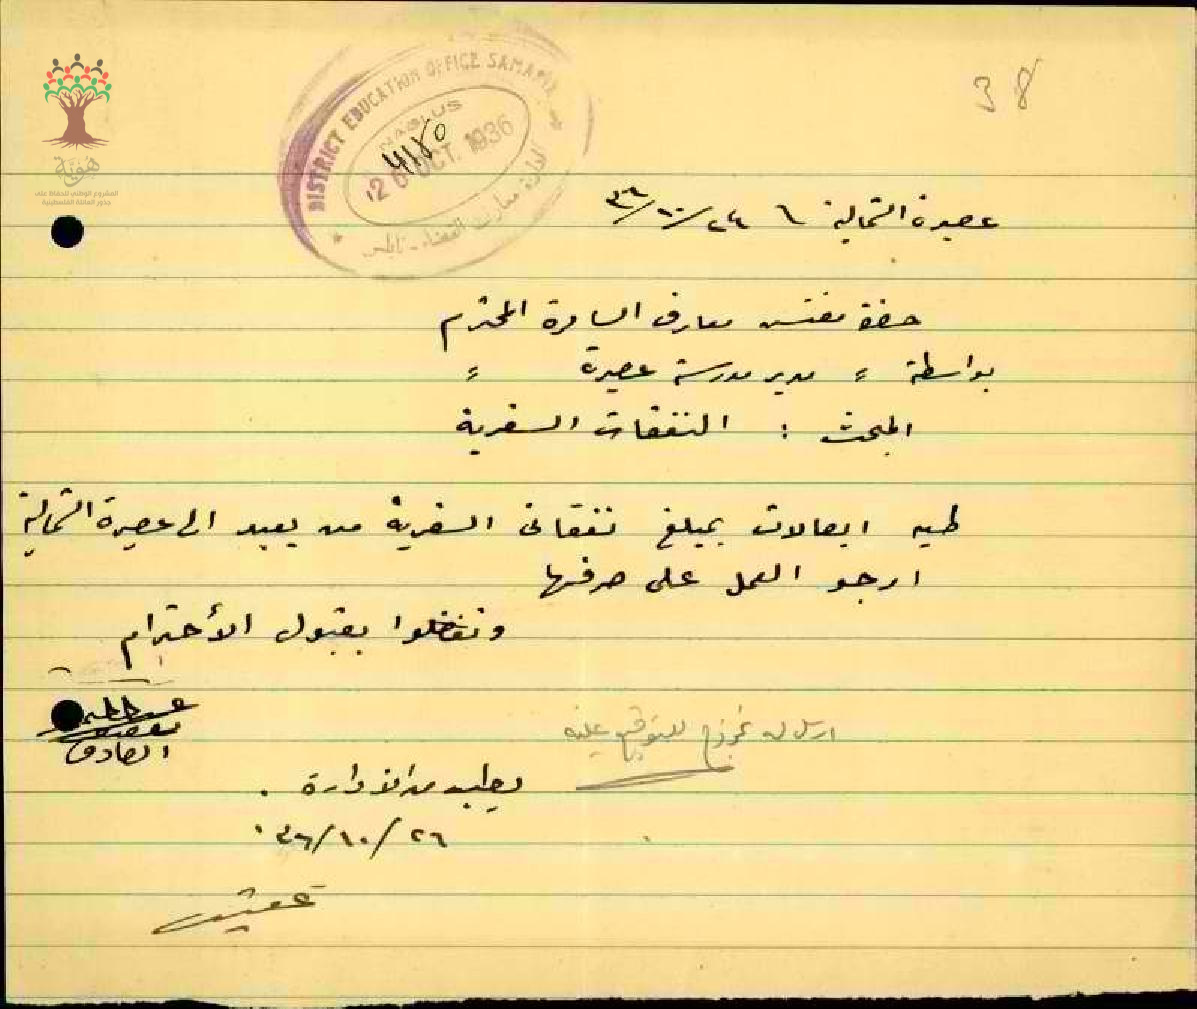 38
DISTRICT EDUCATION OFFICE SAMARIA
NABLUS
26 OCT. 1936
ادارة معارف القضاء - نابلس
هُويّة
المشروع الوطني للحفاظ على
جذور العائلة الفلسطينية
عصيرة الشمالية ٢٤/١٠/٣٦
حضرة مفتش معارف السامرة المحترم
بواسطة = مدير مدرسة عصيرة =
المبحث : النفقات السفرية
طيه ايصالات بمبلغ نفقاتي السفرية من يعبد الى عصيرة الشمالية
ارجو العمل على صرفها
وتفضلوا بقبول الأحترام
الصادق
ارسل له نموذج للتوقيع عليه
يطلب من الادارة .
٢٦/١٠/٣٦